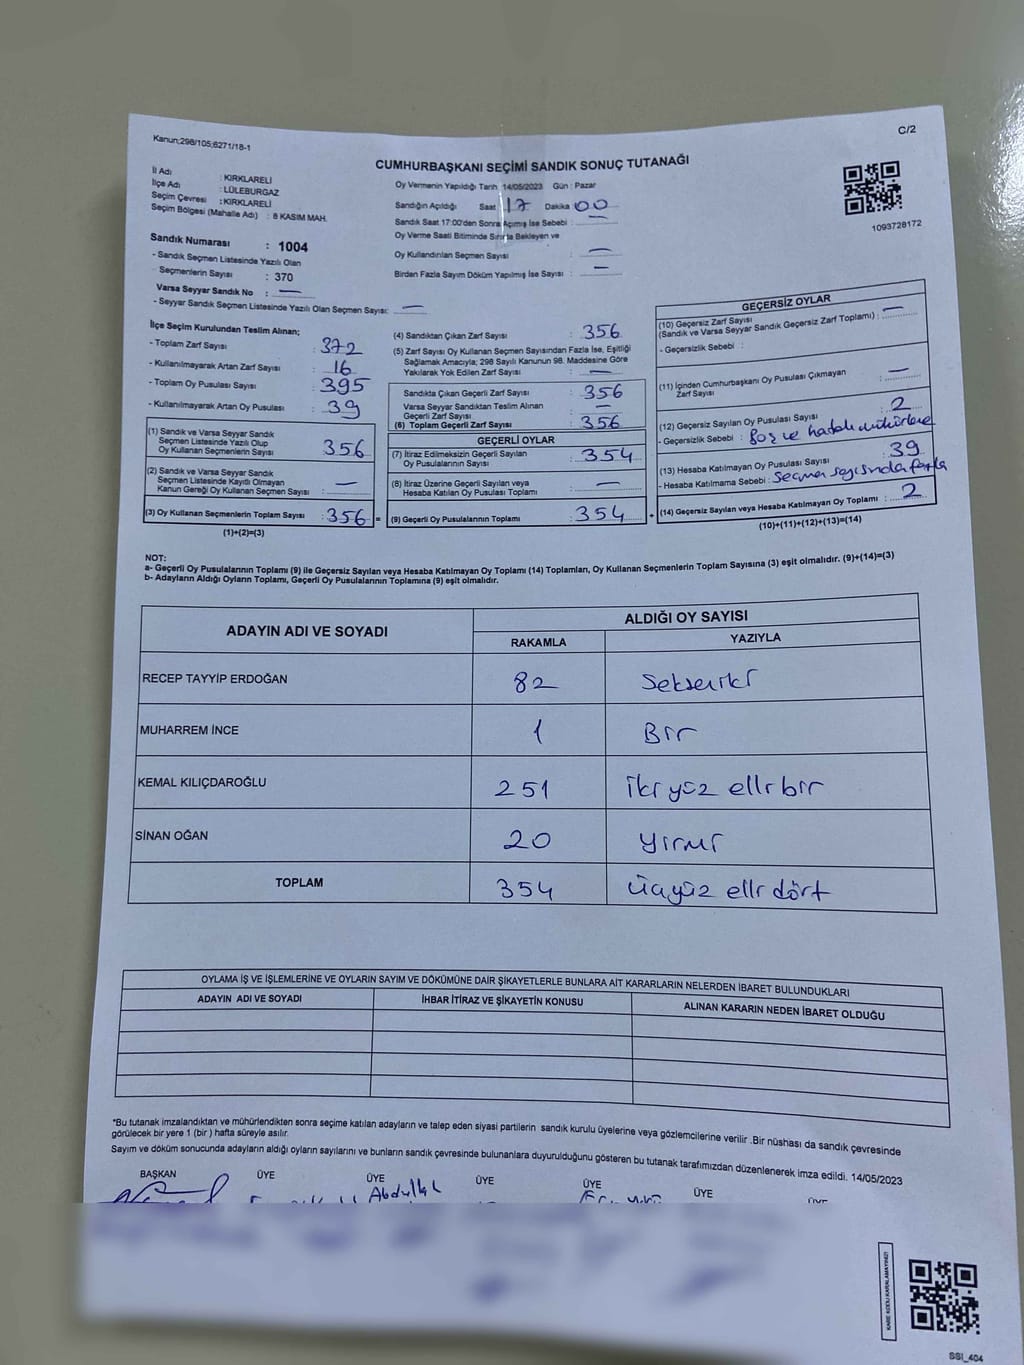 Kanun;298/105;6271/18-1
C/2
CUMHURBAŞKANI SEÇİMİ SANDIK SONUÇ TUTANAĞI
İl Adı : KIRKLARELİ
İlçe Adı : LÜLEBURGAZ
Seçim Çevresi : KIRKLARELİ
Seçim Bölgesi (Mahalle Adı) : 8 KASIM MAH.
Sandık Numarası : 1004
- Sandık Seçmen Listesinde Yazılı Olan
Seçmenlerin Sayısı : 370
Varsa Seyyar Sandık No : —
- Seyyar Sandık Seçmen Listesinde Yazılı Olan Seçmen Sayısı: —
Oy Vermenin Yapıldığı Tarih 14/05/2023 Gün : Pazar
Sandığın Açıldığı Saat 17 Dakika 00
Sandık Saat 17:00'den Sonra Açımış İse Sebebi : —
Oy Verme Saati Bitiminde Sırada Bekleyen ve
Oy Kullandırılan Seçmen Sayısı : —
Birden Fazla Sayım Döküm Yapılmış İse Sayısı : —
1093728172
İlçe Seçim Kurulundan Teslim Alınan;
- Toplam Zarf Sayısı : 372
- Kullanılmayarak Artan Zarf Sayısı : 16
- Toplam Oy Pusulası Sayısı : 395
- Kullanılmayarak Artan Oy Pusulası : 39
(1) Sandık ve Varsa Seyyar Sandık
Seçmen Listesinde Yazılı Olup
Oy Kullanan Seçmenlerin Sayısı : 356
(2) Sandık ve Varsa Seyyar Sandık
Seçmen Listesinde Kayıtlı Olmayan
Kanun Gereği Oy Kullanan Seçmen Sayısı : —
(3) Oy Kullanan Seçmenlerin Toplam Sayısı : 356 =
(1)+(2)=(3)
(4) Sandıktan Çıkan Zarf Sayısı : 356
(5) Zarf Sayısı Oy Kullanan Seçmen Sayısından Fazla İse, Eşitliği
Sağlamak Amacıyla; 298 Sayılı Kanunun 98. Maddesine Göre
Yakılarak Yok Edilen Zarf Sayısı : —
Sandıkta Çıkan Geçerli Zarf Sayısı : 356
Varsa Seyyar Sandıktan Teslim Alınan
Geçerli Zarf Sayısı : —
(6) Toplam Geçerli Zarf Sayısı : 356
GEÇERLİ OYLAR
(7) İtiraz Edilmeksizin Geçerli Sayılan
Oy Pusulalarının Sayısı : 354
(8) İtiraz Üzerine Geçerli Sayılan veya
Hesaba Katılan Oy Pusulası Toplamı : —
(9) Geçerli Oy Pusulalarının Toplamı : 354 +
GEÇERSİZ OYLAR
(10) Geçersiz Zarf Sayısı
(Sandık ve Varsa Seyyar Sandık Geçersiz Zarf Toplamı) : —
- Geçersizlik Sebebi :
(11) İçinden Cumhurbaşkanı Oy Pusulası Çıkmayan
Zarf Sayısı : —
(12) Geçersiz Sayılan Oy Pusulası Sayısı : 2
- Geçersizlik Sebebi : Boş ve hatalı mühürleme
(13) Hesaba Katılmayan Oy Pusulası Sayısı : 39
- Hesaba Katılmama Sebebi : Seçmen sayısından fazla
(14) Geçersiz Sayılan veya Hesaba Katılmayan Oy Toplamı : 2
(10)+(11)+(12)+(13)=(14)
NOT:
a- Geçerli Oy Pusulalarının Toplamı (9) ile Geçersiz Sayılan veya Hesaba Katılmayan Oy Toplamı (14) Toplamları, Oy Kullanan Seçmenlerin Toplam Sayısına (3) eşit olmalıdır. (9)+(14)=(3)
b- Adayların Aldığı Oyların Toplamı, Geçerli Oy Pusulalarının Toplamına (9) eşit olmalıdır.
ADAYIN ADI VE SOYADI ALDIĞI OY SAYISI
RAKAMLA YAZIYLA
RECEP TAYYİP ERDOĞAN 82 Sekseniki
MUHARREM İNCE 1 Bir
KEMAL KILIÇDAROĞLU 251 ikiyüz ellibir
SİNAN OĞAN 20 Yirmi
TOPLAM 354 Üçyüz elli dört
OYLAMA İŞ VE İŞLEMLERİNE VE OYLARIN SAYIM VE DÖKÜMÜNE DAİR ŞİKAYETLERLE BUNLARA AİT KARARLARIN NELERDEN İBARET BULUNDUKLARI
ADAYIN ADI VE SOYADI İHBAR İTİRAZ VE ŞİKAYETİN KONUSU ALINAN KARARIN NEDEN İBARET OLDUĞU
*Bu tutanak imzalandıktan ve mühürlendikten sonra seçime katılan adayların ve talep eden siyasi partilerin sandık kurulu üyelerine veya gözlemcilerine verilir .Bir nüshası da sandık çevresinde
görülecek bir yere 1 (bir ) hafta süreyle asılır.
Sayım ve döküm sonucunda adayların aldığı oyların sayılarını ve bunların sandık çevresinde bulunanlara duyurulduğunu gösteren bu tutanak tarafımızdan düzenlenerek imza edildi. 14/05/2023
BAŞKAN ÜYE ÜYE ÜYE ÜYE ÜYE ÜYE
Abdullah
KARE KODU KARALAMAYINIZ!
SSI_404